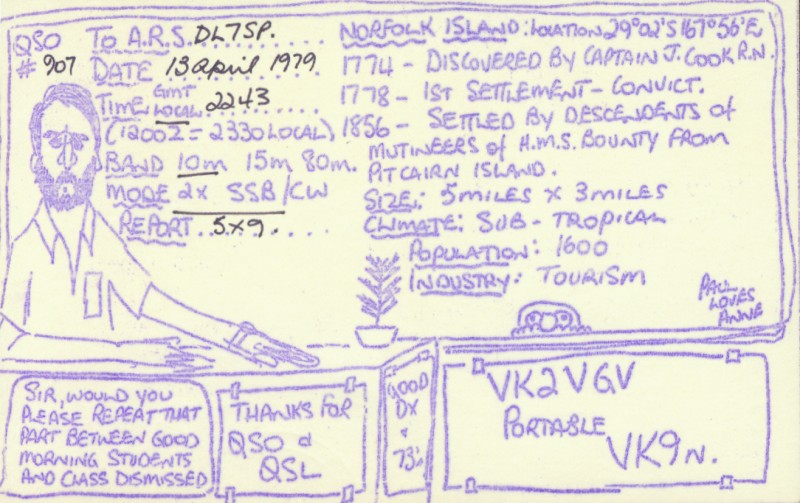 QSO To A.R.S. DL7SP.
# 907 DATE 13 April 1979
TIME GMT LOCAL 2243
(1200Z = 2330 LOCAL)
BAND 10m 15m 80m.
MODE 2x SSB/CW
REPORT. 5x9.
NORFOLK ISLAND: LOCATION 29°02'S 167°56'E
1774 - DISCOVERED BY CAPTAIN J. COOK R.N.
1778 - 1ST SETTLEMENT - CONVICT.
1856 - SETTLED BY DESCENDENTS of
MUTINEERS of H.M.S. BOUNTY FROM
PITCAIRN ISLAND.
SIZE: 5 MILES X 3 MILES
CLIMATE: SUB - TROPICAL
POPULATION: 1600
INDUSTRY: TOURISM
PAUL
LOVES
ANNE
SIR, WOULD YOU
PLEASE REPEAT THAT
PART BETWEEN GOOD
MORNING STUDENTS
AND CLASS DISMISSED
THANKS FOR
QSO &
QSL
GOOD
DX
&
73's
VK2VGV
PORTABLE
VK9N.